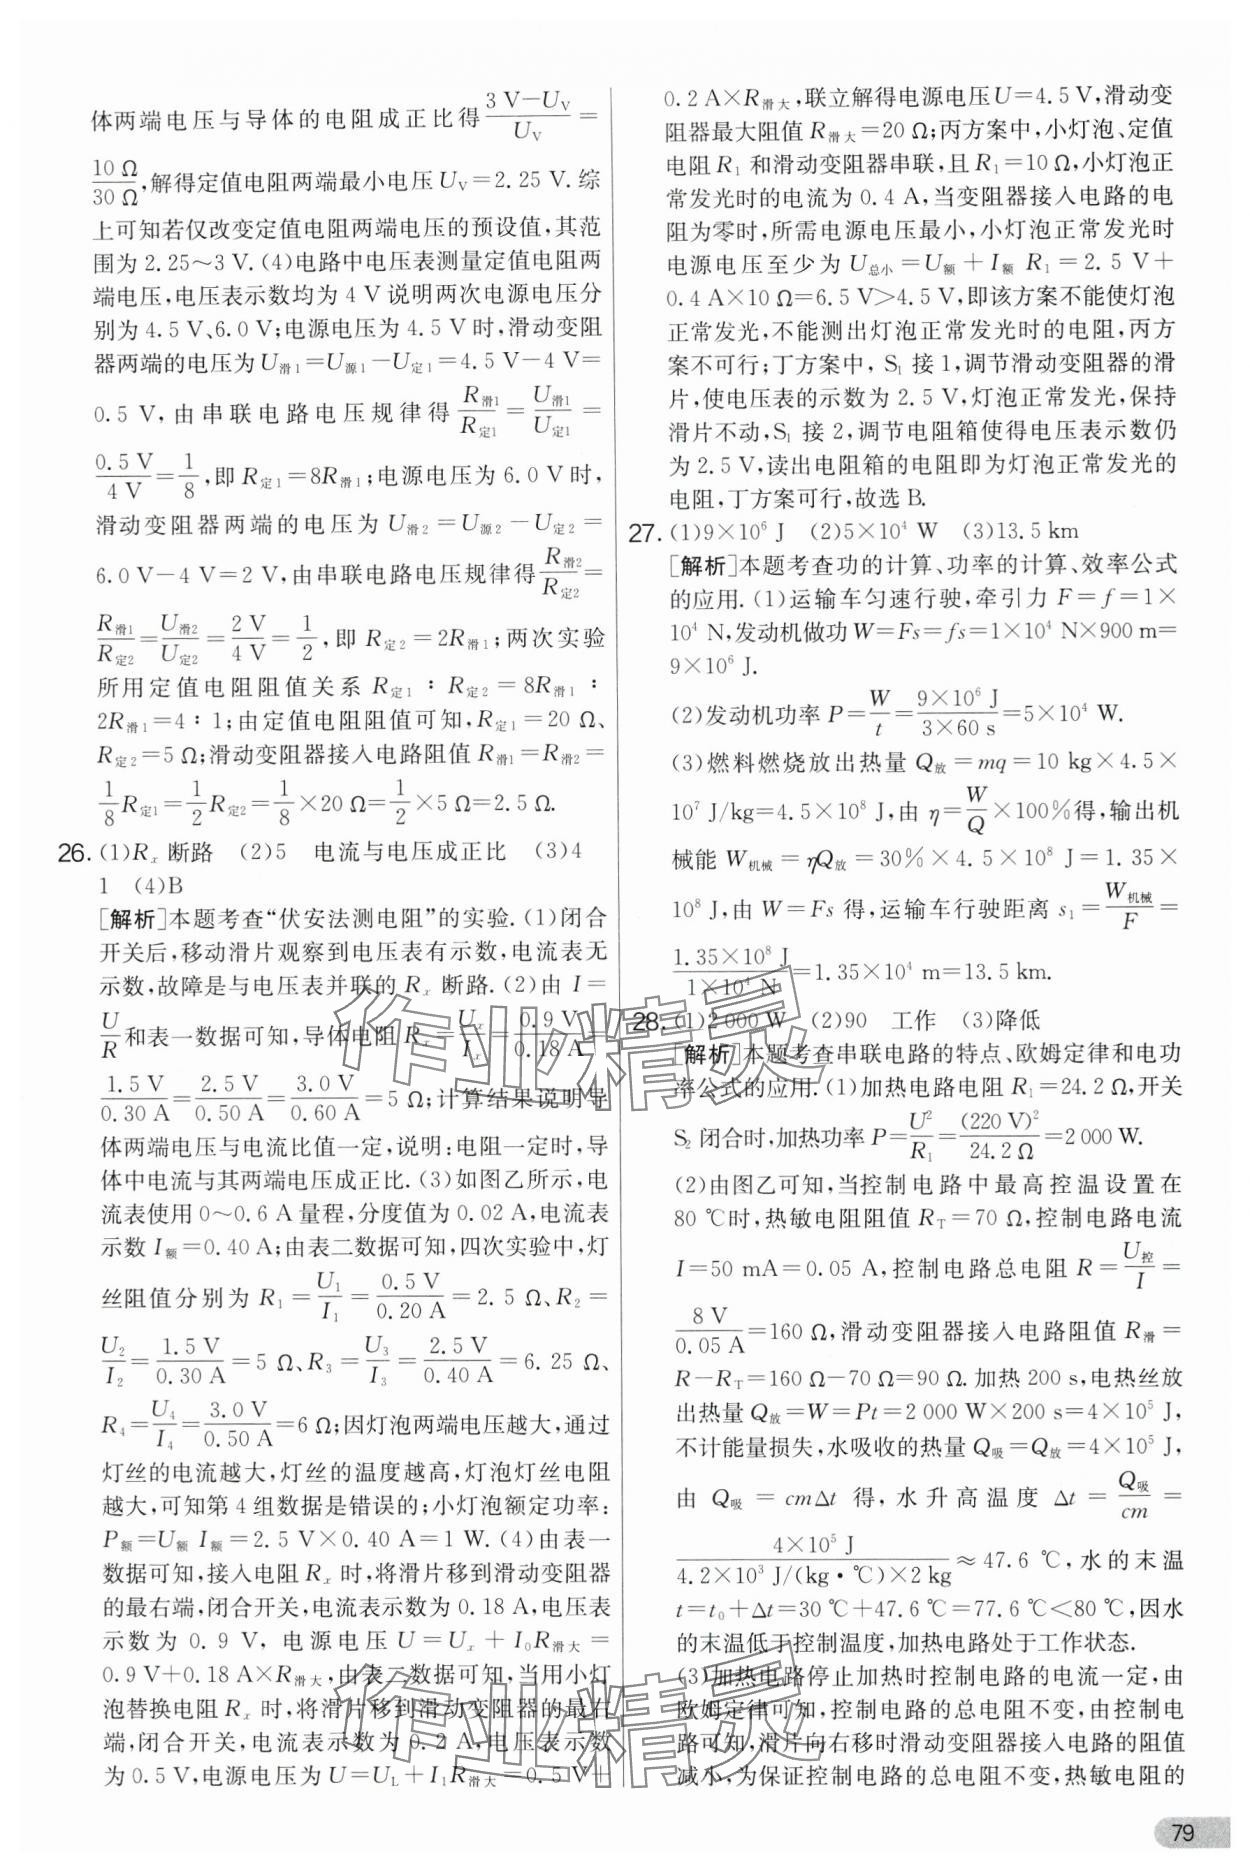 体两端电压与导体的电阻成正比得(3 V－U_V)/U_V＝
10 Ω/30 Ω,解得定值电阻两端最小电压U_V＝2.25 V.综
上可知若仅改变定值电阻两端电压的预设值,其范
围为 2.25～3 V.(4)电路中电压表测量定值电阻两
端电压,电压表示数均为 4 V 说明两次电源电压分
别为 4.5 V、6.0 V;电源电压为 4.5 V 时,滑动变阻
器两端的电压为 U滑1＝U源1－U定1＝4.5 V－4 V＝
0.5 V,由串联电路电压规律得 R滑1/R定1＝U滑1/U定1＝
0.5 V/4 V＝1/8,即 R定1＝8R滑1;电源电压为 6.0 V 时,
滑动变阻器两端的电压为 U滑2＝U源2－U定2＝
6.0 V－4 V＝2 V,由串联电路电压规律得 R滑2/R定2＝
R滑1/R定2＝U滑2/U定2＝2 V/4 V＝1/2,即 R定2＝2R滑1;两次实验
所用定值电阻阻值关系 R定1 ∶ R定2＝8R滑1 ∶
2R滑1＝4 ∶ 1;由定值电阻阻值可知,R定1＝20 Ω、
R定2＝5 Ω;滑动变阻器接入电路阻值 R滑1＝R滑2＝
1/8 R定1＝1/2 R定2＝1/8×20 Ω＝1/2×5 Ω＝2.5 Ω.
26. (1)Rx 断路 (2)5 电流与电压成正比 (3)4
1 (4)B
[解析]本题考查“伏安法测电阻”的实验.(1)闭合
开关后,移动滑片观察到电压表有示数,电流表无
示数,故障是与电压表并联的 Rx 断路.(2)由 I＝
U/R 和表一数据可知,导体电阻 Rx＝Ux/Ix＝0.9 V/0.18 A＝
1.5 V/0.30 A＝2.5 V/0.50 A＝3.0 V/0.60 A＝5 Ω;计算结果说明导
体两端电压与电流比值一定,说明:电阻一定时,导
体中电流与其两端电压成正比.(3)如图乙所示,电
流表使用 0～0.6 A 量程,分度值为 0.02 A,电流表
示数 I额＝0.40 A;由表二数据可知,四次实验中,灯
丝阻值分别为 R1＝U1/I1＝0.5 V/0.20 A＝2.5 Ω、R2＝
U2/I2＝1.5 V/0.30 A＝5 Ω、R3＝U3/I3＝2.5 V/0.40 A＝6.25 Ω、
R4＝U4/I4＝3.0 V/0.50 A＝6 Ω;因灯泡两端电压越大,通过
灯丝的电流越大,灯丝的温度越高,灯泡灯丝电阻
越大,可知第 4 组数据是错误的;小灯泡额定功率:
P额＝U额 I额＝2.5 V×0.40 A＝1 W.(4)由表一
数据可知,接入电阻 Rx 时,将滑片移到滑动变阻器
的最右端,闭合开关,电流表示数为 0.18 A,电压表
示数为 0.9 V,电源电压 U＝Ux＋I0R滑大＝
0.9 V＋0.18 A×R滑大,由表二数据可知,当用小灯
泡替换电阻 Rx 时,将滑片移到滑动变阻器的最右
端,闭合开关,电流表示数为 0.2 A,电压表示数
为 0.5 V,电源电压为 U＝UL＋I1R滑大＝0.5 V＋
0.2 A×R滑大,联立解得电源电压U＝4.5 V,滑动变
阻器最大阻值 R滑大＝20 Ω;丙方案中,小灯泡、定值
电阻 R1 和滑动变阻器串联,且 R1＝10 Ω,小灯泡正
常发光时的电流为 0.4 A,当变阻器接入电路的电
阻为零时,所需电源电压最小,小灯泡正常发光时
电源电压至少为 U总小＝U额＋I额 R1＝2.5 V＋
0.4 A×10 Ω＝6.5 V＞4.5 V,即该方案不能使灯泡
正常发光,不能测出灯泡正常发光时的电阻,丙方
案不可行;丁方案中,S1 接 1,调节滑动变阻器的滑
片,使电压表的示数为 2.5 V,灯泡正常发光,保持
滑片不动,S1 接 2,调节电阻箱使得电压表示数仍
为 2.5 V,读出电阻箱的电阻即为灯泡正常发光的
电阻,丁方案可行,故选 B.
27. (1)9×10⁶ J (2)5×10⁴ W (3)13.5 km
[解析]本题考查功的计算、功率的计算、效率公式
的应用.(1)运输车匀速行驶,牵引力 F＝f＝1×
10⁴ N,发动机做功 W＝Fs＝fs＝1×10⁴ N×900 m＝
9×10⁶ J.
(2)发动机功率 P＝W/t＝9×10⁶ J/3×60 s＝5×10⁴ W.
(3)燃料燃烧放出热量 Q放＝mq＝10 kg×4.5×
10⁷ J/kg＝4.5×10⁸ J,由 η＝W/Q×100%得,输出机
械能 W机械＝ηQ放＝30%×4.5×10⁸ J＝1.35×
10⁸ J,由 W＝Fs 得,运输车行驶距离 s1＝W机械/F＝
1.35×10⁸ J/1×10⁴ N＝1.35×10⁴ m＝13.5 km.
28. (1)2 000 W (2)90 工作 (3)降低
[解析]本题考查串联电路的特点、欧姆定律和电功
率公式的应用.(1)加热电路电阻 R1＝24.2 Ω,开关
S2 闭合时,加热功率 P＝U²/R1＝(220 V)²/24.2 Ω＝2 000 W.
(2)由图乙可知,当控制电路中最高控温设置在
80 ℃时,热敏电阻阻值 RT＝70 Ω,控制电路电流
I＝50 mA＝0.05 A,控制电路总电阻 R＝U控/I＝
8 V/0.05 A＝160 Ω,滑动变阻器接入电路阻值 R滑＝
R－RT＝160 Ω－70 Ω＝90 Ω.加热 200 s,电热丝放
出热量 Q放＝W＝Pt＝2 000 W×200 s＝4×10⁵ J,
不计能量损失,水吸收的热量 Q吸＝Q放＝4×10⁵ J,
由 Q吸＝cmΔt 得,水升高温度 Δt＝Q吸/cm＝
4×10⁵ J/4.2×10³ J/(kg·℃)×2 kg≈47.6 ℃,水的末温
t＝t0＋Δt＝30 ℃＋47.6 ℃＝77.6 ℃＜80 ℃,因水
的末温低于控制温度,加热电路处于工作状态.
(3)加热电路停止加热时控制电路的电流一定,由
欧姆定律可知,控制电路的总电阻不变,由串联电
路可知,滑片向右移时滑动变阻器接入电路的阻值
减小,为保证控制电路的总电阻不变,热敏电阻的
79
作业精灵
作业精灵